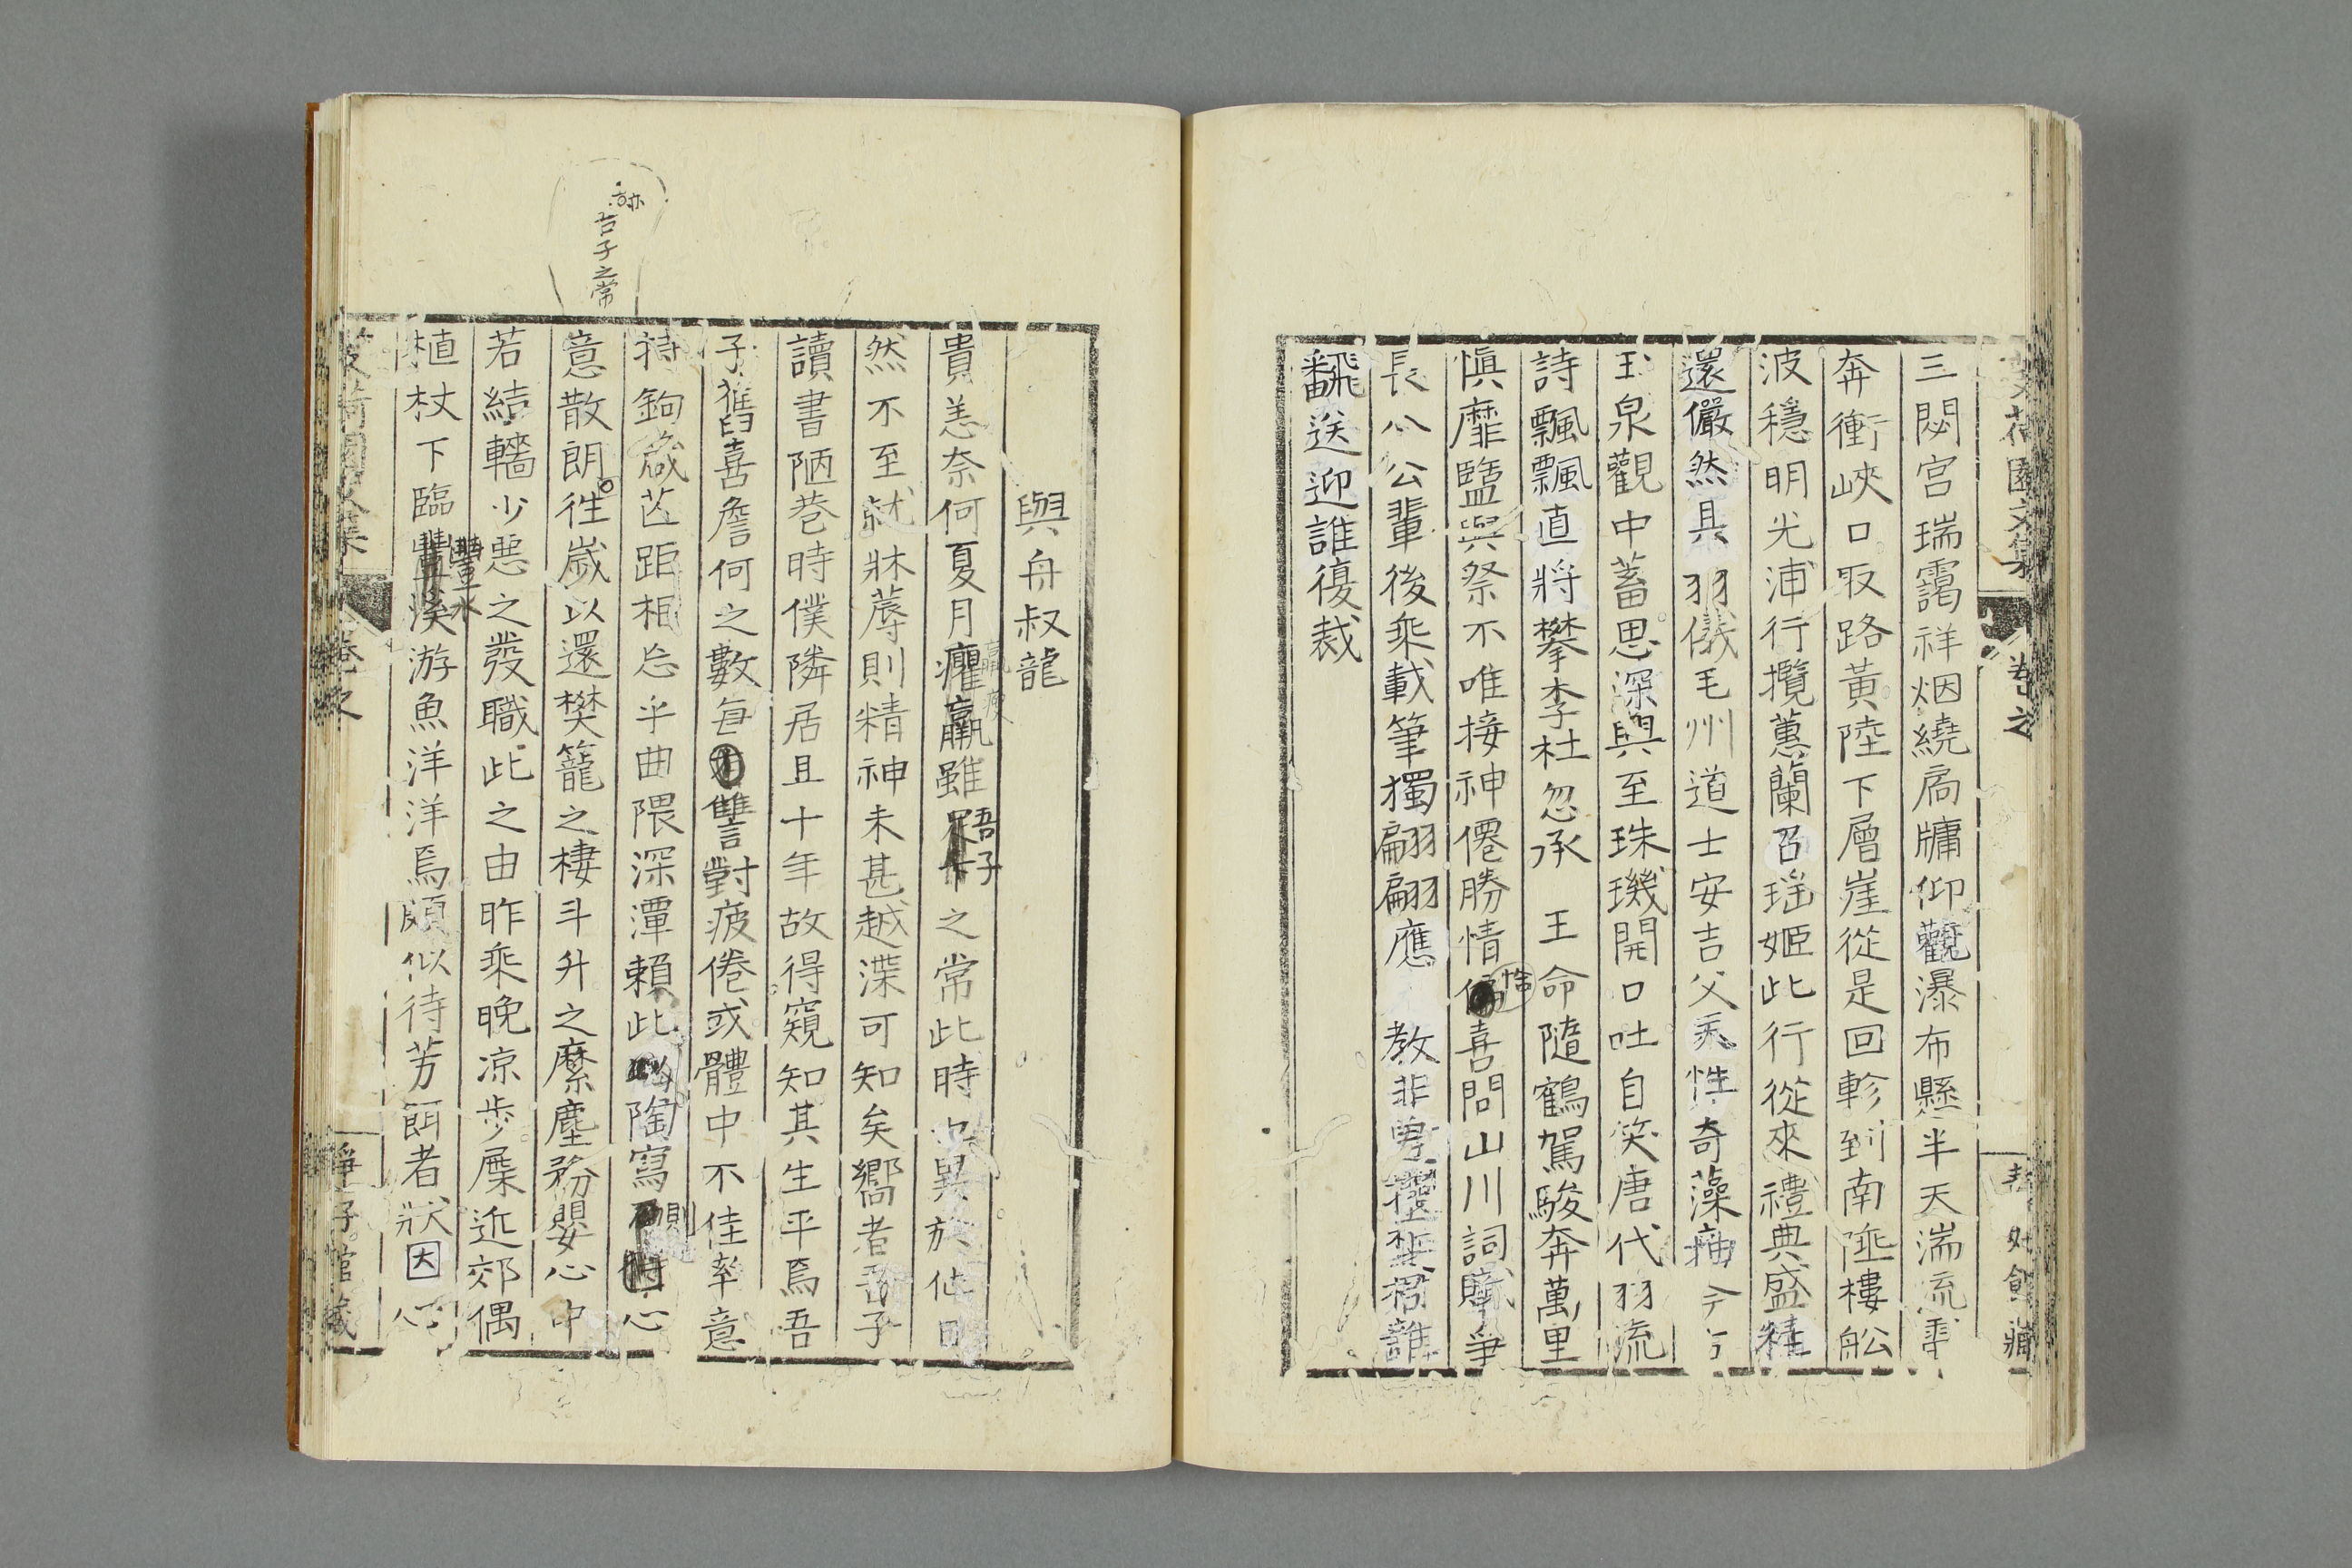 三閟宮瑞靄祥烟繞扄牗仰觀瀑布懸半天湍流
奔衝峽口取路黃陸下層崖從是回軫到南陲樓舩
波穩明光浦行攬蕙蘭召瑶姬此行從來禮典盛精
還儼然具羽儀毛州道士安吉父秉性奇藻
玉泉觀中蓄思深與至珠璣開口吐自笑唐代羽流
詩飄飄直將攀李杜忽承 王命隨鶴駕駿奔萬里
愼靡鹽與祭不唯接神僊勝情喜問山川詞賦爭
恰
長公輩後乘載筆獨翩翩應 教非
翻送迎誰復裁
與舟叔龍
貴恙奈何夏月癯羸雖吾子之常此時也異於他日
羸疲
然不至就牀蓐則精神未甚越渫可知矣嚮者吾子
讀書陋巷時僕隣居且十年故得窺知其生平焉吾
子舊喜詹何之數每讐對疲倦或體中不佳率意
持鉤箴芒距相忘乎曲隈深潭賴此陶寫則心
意散朗徃歲以還樊籠之棲斗升之縻塵務嬰心中
若結轖少惡之發職此之由昨乘晚凉步屧近郊偶
植杖下臨豐水游魚洋洋焉頗似待芳餌者狀因心
亦吾子之常
卷之